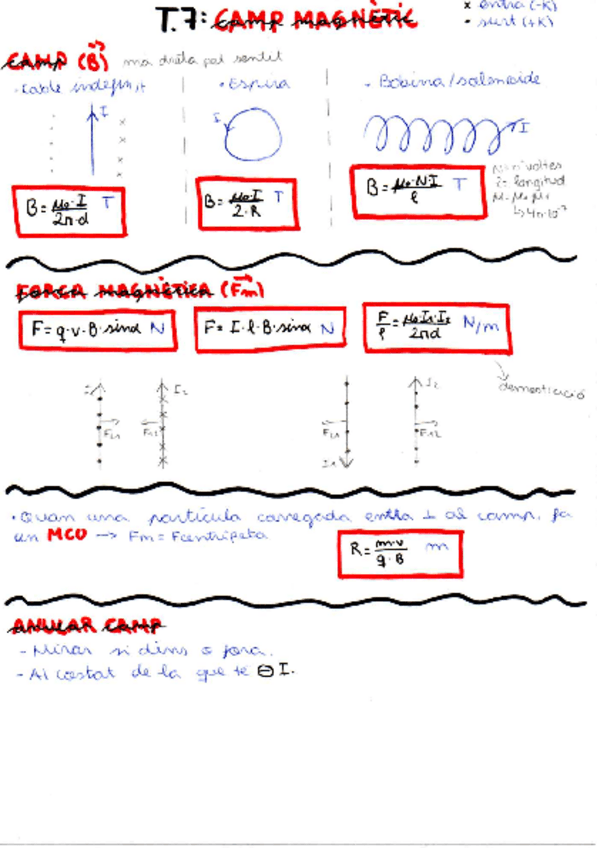 T.7: CAMP MAGNÈTIC
x entra (-K)
• surt (+K)
CAMP (B) mà dreta pel sentit
· Cable indefinit
· Espira
· Bobina/solenoide
I
I
I
B = μ₀·I / 2π·d T
B = μ₀·I / 2·R T
B = μ₀·N·I / ℓ T
N = nº voltes
ℓ = longitud
μ = μ₀·μr
↳ 4π·10⁻⁷
FORÇA MAGNÈTICA (Fm)
F = q·v·B·sinα N
F = I·ℓ·B·sinα N
F/ℓ = μ₀·I₁·I₂ / 2πd N/m
demostració
I₂
I₂
F₂₁
F₁₂
F₂₁
F₁₂
I₁
· Quan una partícula carregada entra ⊥ al camp, fa
un MCU → Fm = Fcentrípeta
R = m·v / q·B m
ANULAR CAMP
- Mirar si dins o fora.
- Al costat de la que te ⊖ I.